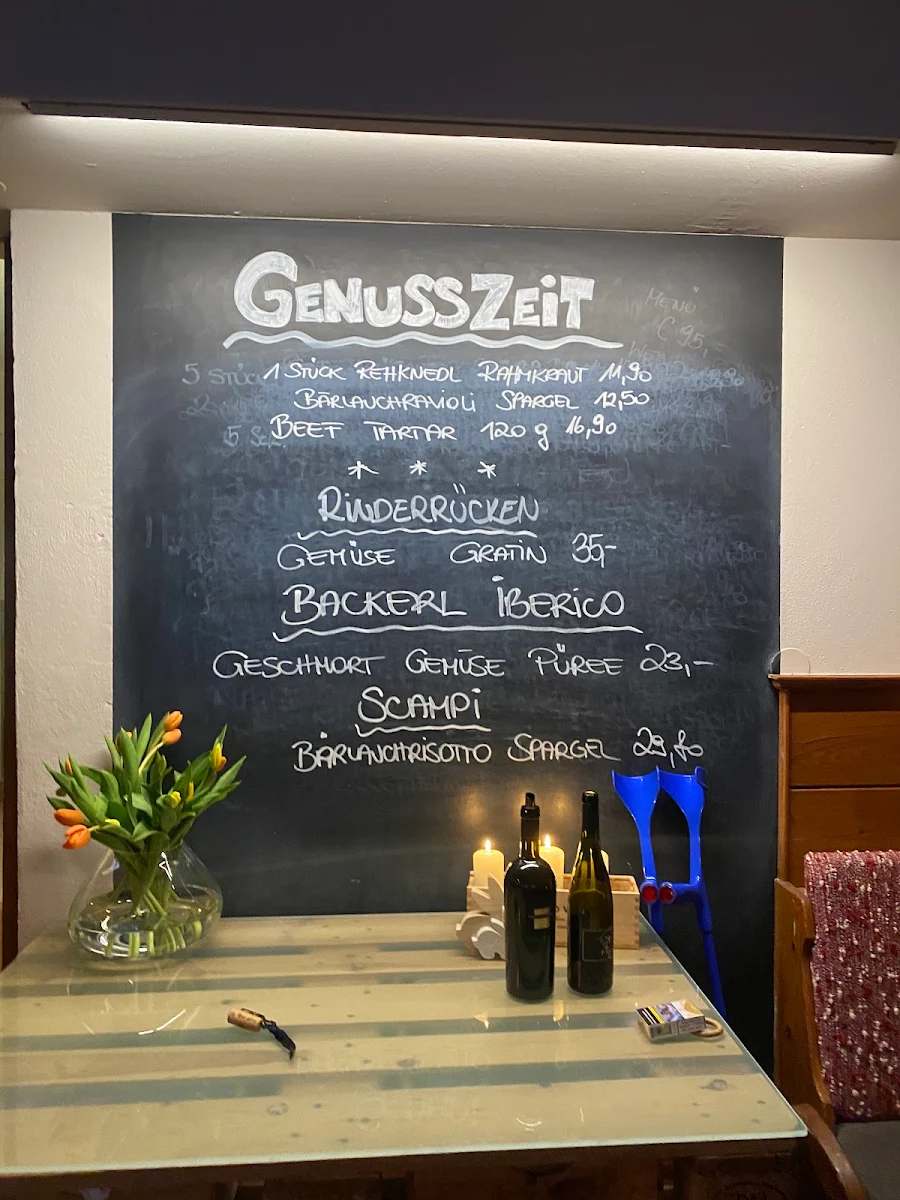 GENUSSZEIT
MENÜ
1 STÜCK REHKNEDL RAHMKRAUT 11,90
BÄRLAUCHRAVIOLI SPARGEL 12,50
BEEF TARTAR 120 g 16,90
* * *
RINDERRÜCKEN
GEMÜSE GRATIN 35,-
BACKERL IBERICO
GESCHMORT GEMÜSE PÜREE 23,-
SCAMPI
BÄRLAUCHRISOTTO SPARGEL